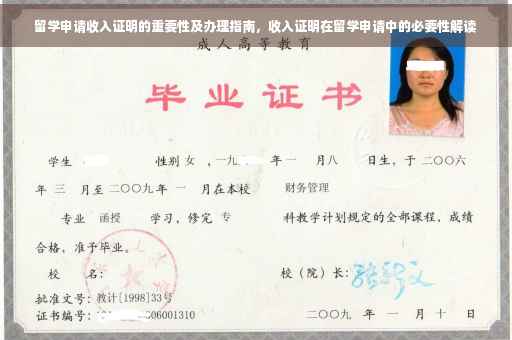 留学申请收入证明的重要性及办理指南，收入证明在留学申请中的必要性解读
成人高等教育
毕业证书
学生 性别 女 ，一九 年 一 月八 日生，于 二〇〇六
年 三 月至 二〇〇九 年 一 月在本校 财务管理
专业 函授 学习，修完 专 科教学计划规定的全部课程，成绩
合格，准予毕业。
校 名： 校（院）长：
批准文号：教计[1998]33号
证书编号： 606001310 二〇〇九 年 一 月 十 日